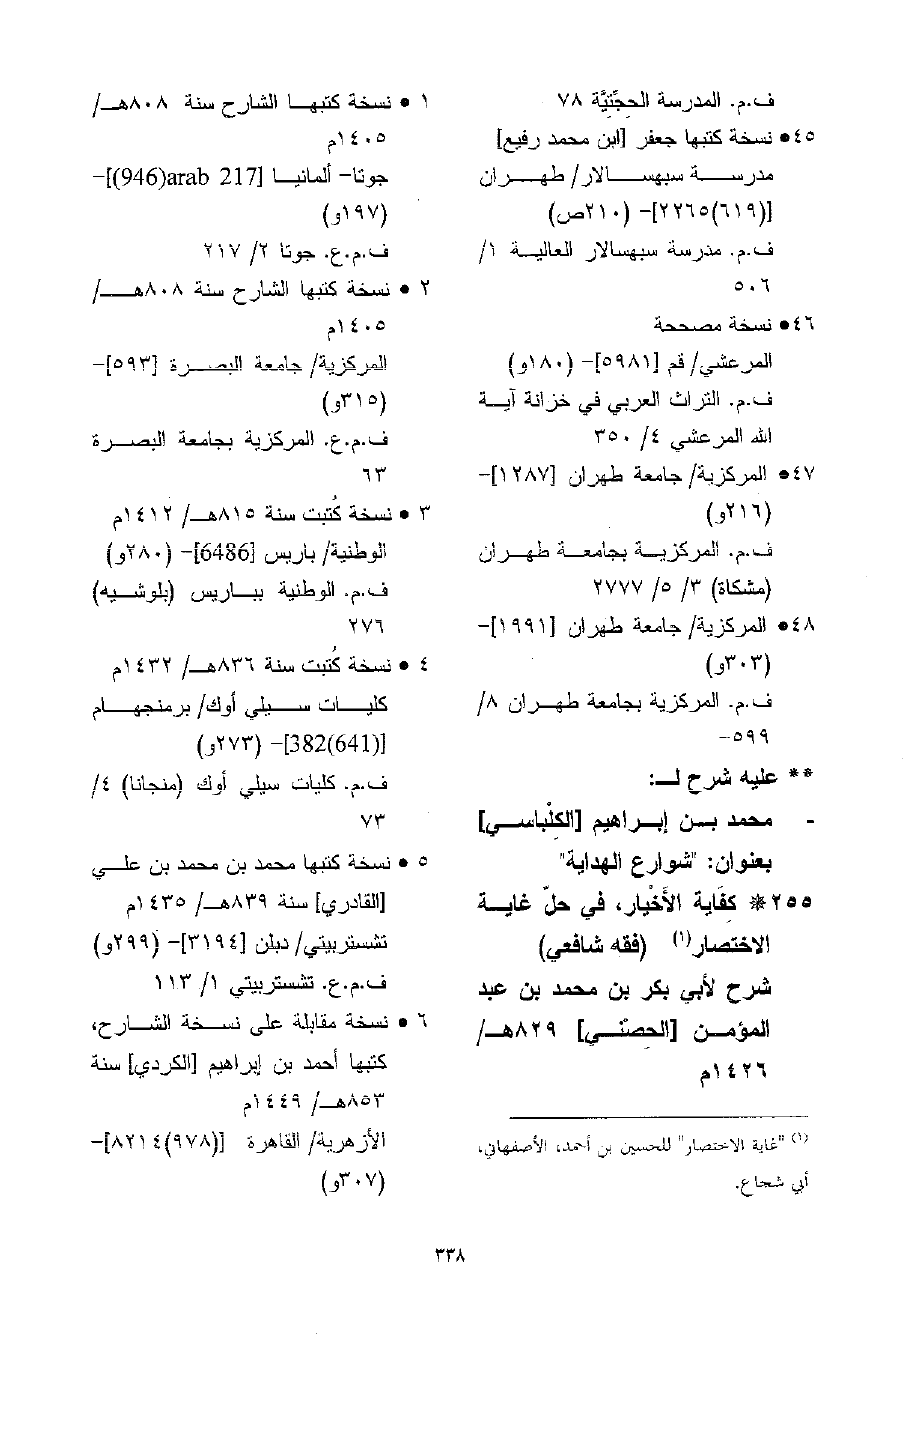 ف.م. المدرسة الحجّتيّة ٧٨
٤٥• نسخة كتبها جعفر [ابن محمد رفيع]
مدرسة سبهسالار/ طهران
[(٦١٩)٢٢٦٥]- (٢١٠ص)
ف.م. مدرسة سبهسالار العالية ١/
٥٠٦
٤٦• نسخة مصححة
المرعشي/ قم [٥٩٨١]- (١٨٠و)
ف.م. التراث العربي في خزانة آية
الله المرعشي ٤/ ٣٥٠
٤٧• المركزية/ جامعة طهران [١٢٨٧]-
(٢١٦و)
ف.م. المركزية بجامعة طهران
(مشكاة) ٣/ ٥/ ٢٧٧٧
٤٨• المركزية/ جامعة طهران [١٩٩١]-
(٣٠٣و)
ف.م. المركزية بجامعة طهران ٨/
٥٩٩-
** عليه شرح لـ:
- محمد بن إبراهيم [الكلْباسي]
بعنوان: "شوارع الهداية"
٢٥٥* كفَاية الأخْيار، في حلّ غاية
الاختصار(١) (فقه شافعي)
شرح لأبي بكر بن محمد بن عبد
المؤمن [الحصنّي] ٨٢٩هـ/
١٤٢٦م
(١) "غاية الاختصار" للحسين بن أحمد، الأصفهاني،
أبي شجاع.
١ • نسخة كتبها الشارح سنة ٨٠٨هـ/
١٤٠٥م
جوتا- ألمانيا [arab 217(946)]-
(١٩٧و)
ف.م.ع. جوتا ٢/ ٢١٧
٢ • نسخة كتبها الشارح سنة ٨٠٨هـ/
١٤٠٥م
المركزية/ جامعة البصرة [٥٩٣]-
(٣١٥و)
ف.م.ع. المركزية بجامعة البصرة
٦٣
٣ • نسخة كُتبت سنة ٨١٥هـ/ ١٤١٢م
الوطنية/ باريس [6486]- (٢٨٠و)
ف.م. الوطنية بباريس (بلوشيه)
٢٧٦
٤ • نسخة كُتبت سنة ٨٣٦هـ/ ١٤٣٢م
كليات سيلي أوك/ برمنجهام
[382(641)]- (٢٧٣و)
ف.م. كليات سيلي أوك (منجانا) ٤/
٧٣
٥ • نسخة كتبها محمد بن محمد بن علي
[القادري] سنة ٨٣٩هـ/ ١٤٣٥م
تشستربيتي/ دبلن [٣١٩٤]- (٢٩٩و)
ف.م.ع. تشستربيتي ١/ ١١٣
٦ • نسخة مقابلة على نسخة الشارح،
كتبها أحمد بن إبراهيم [الكردي] سنة
٨٥٣هـ/ ١٤٤٩م
الأزهرية/ القاهرة [(٩٧٨)٨٢١٤]-
(٣٠٧و)
٣٣٨